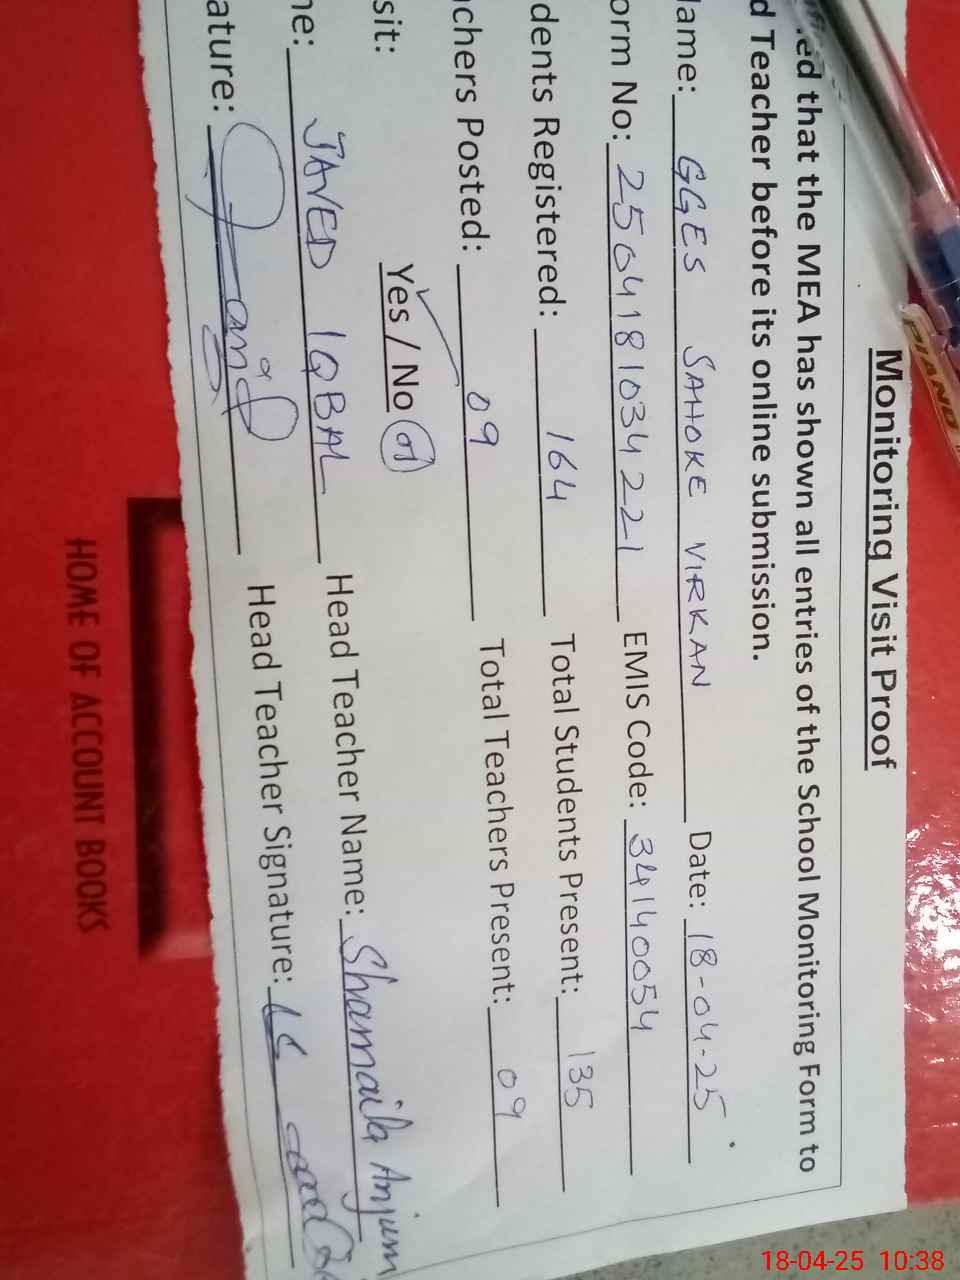 Monitoring Visit Proof
that the MEA has shown all entries of the School Monitoring Form to
d Teacher before its online submission.
lame: GGES SAHOKE VIRKAN Date: 18-04-25
orm No: 2504181034221 EMIS Code: 34140054
dents Registered: 164 Total Students Present: 135
chers Posted: 09 Total Teachers Present: 09
sit: Yes / No 01
ne: JAVED IQBAL Head Teacher Name: Shamaila Anjum
ature: Head Teacher Signature:
PIANO
HOME OF ACCOUNT BOOKS
18-04-25 10:38